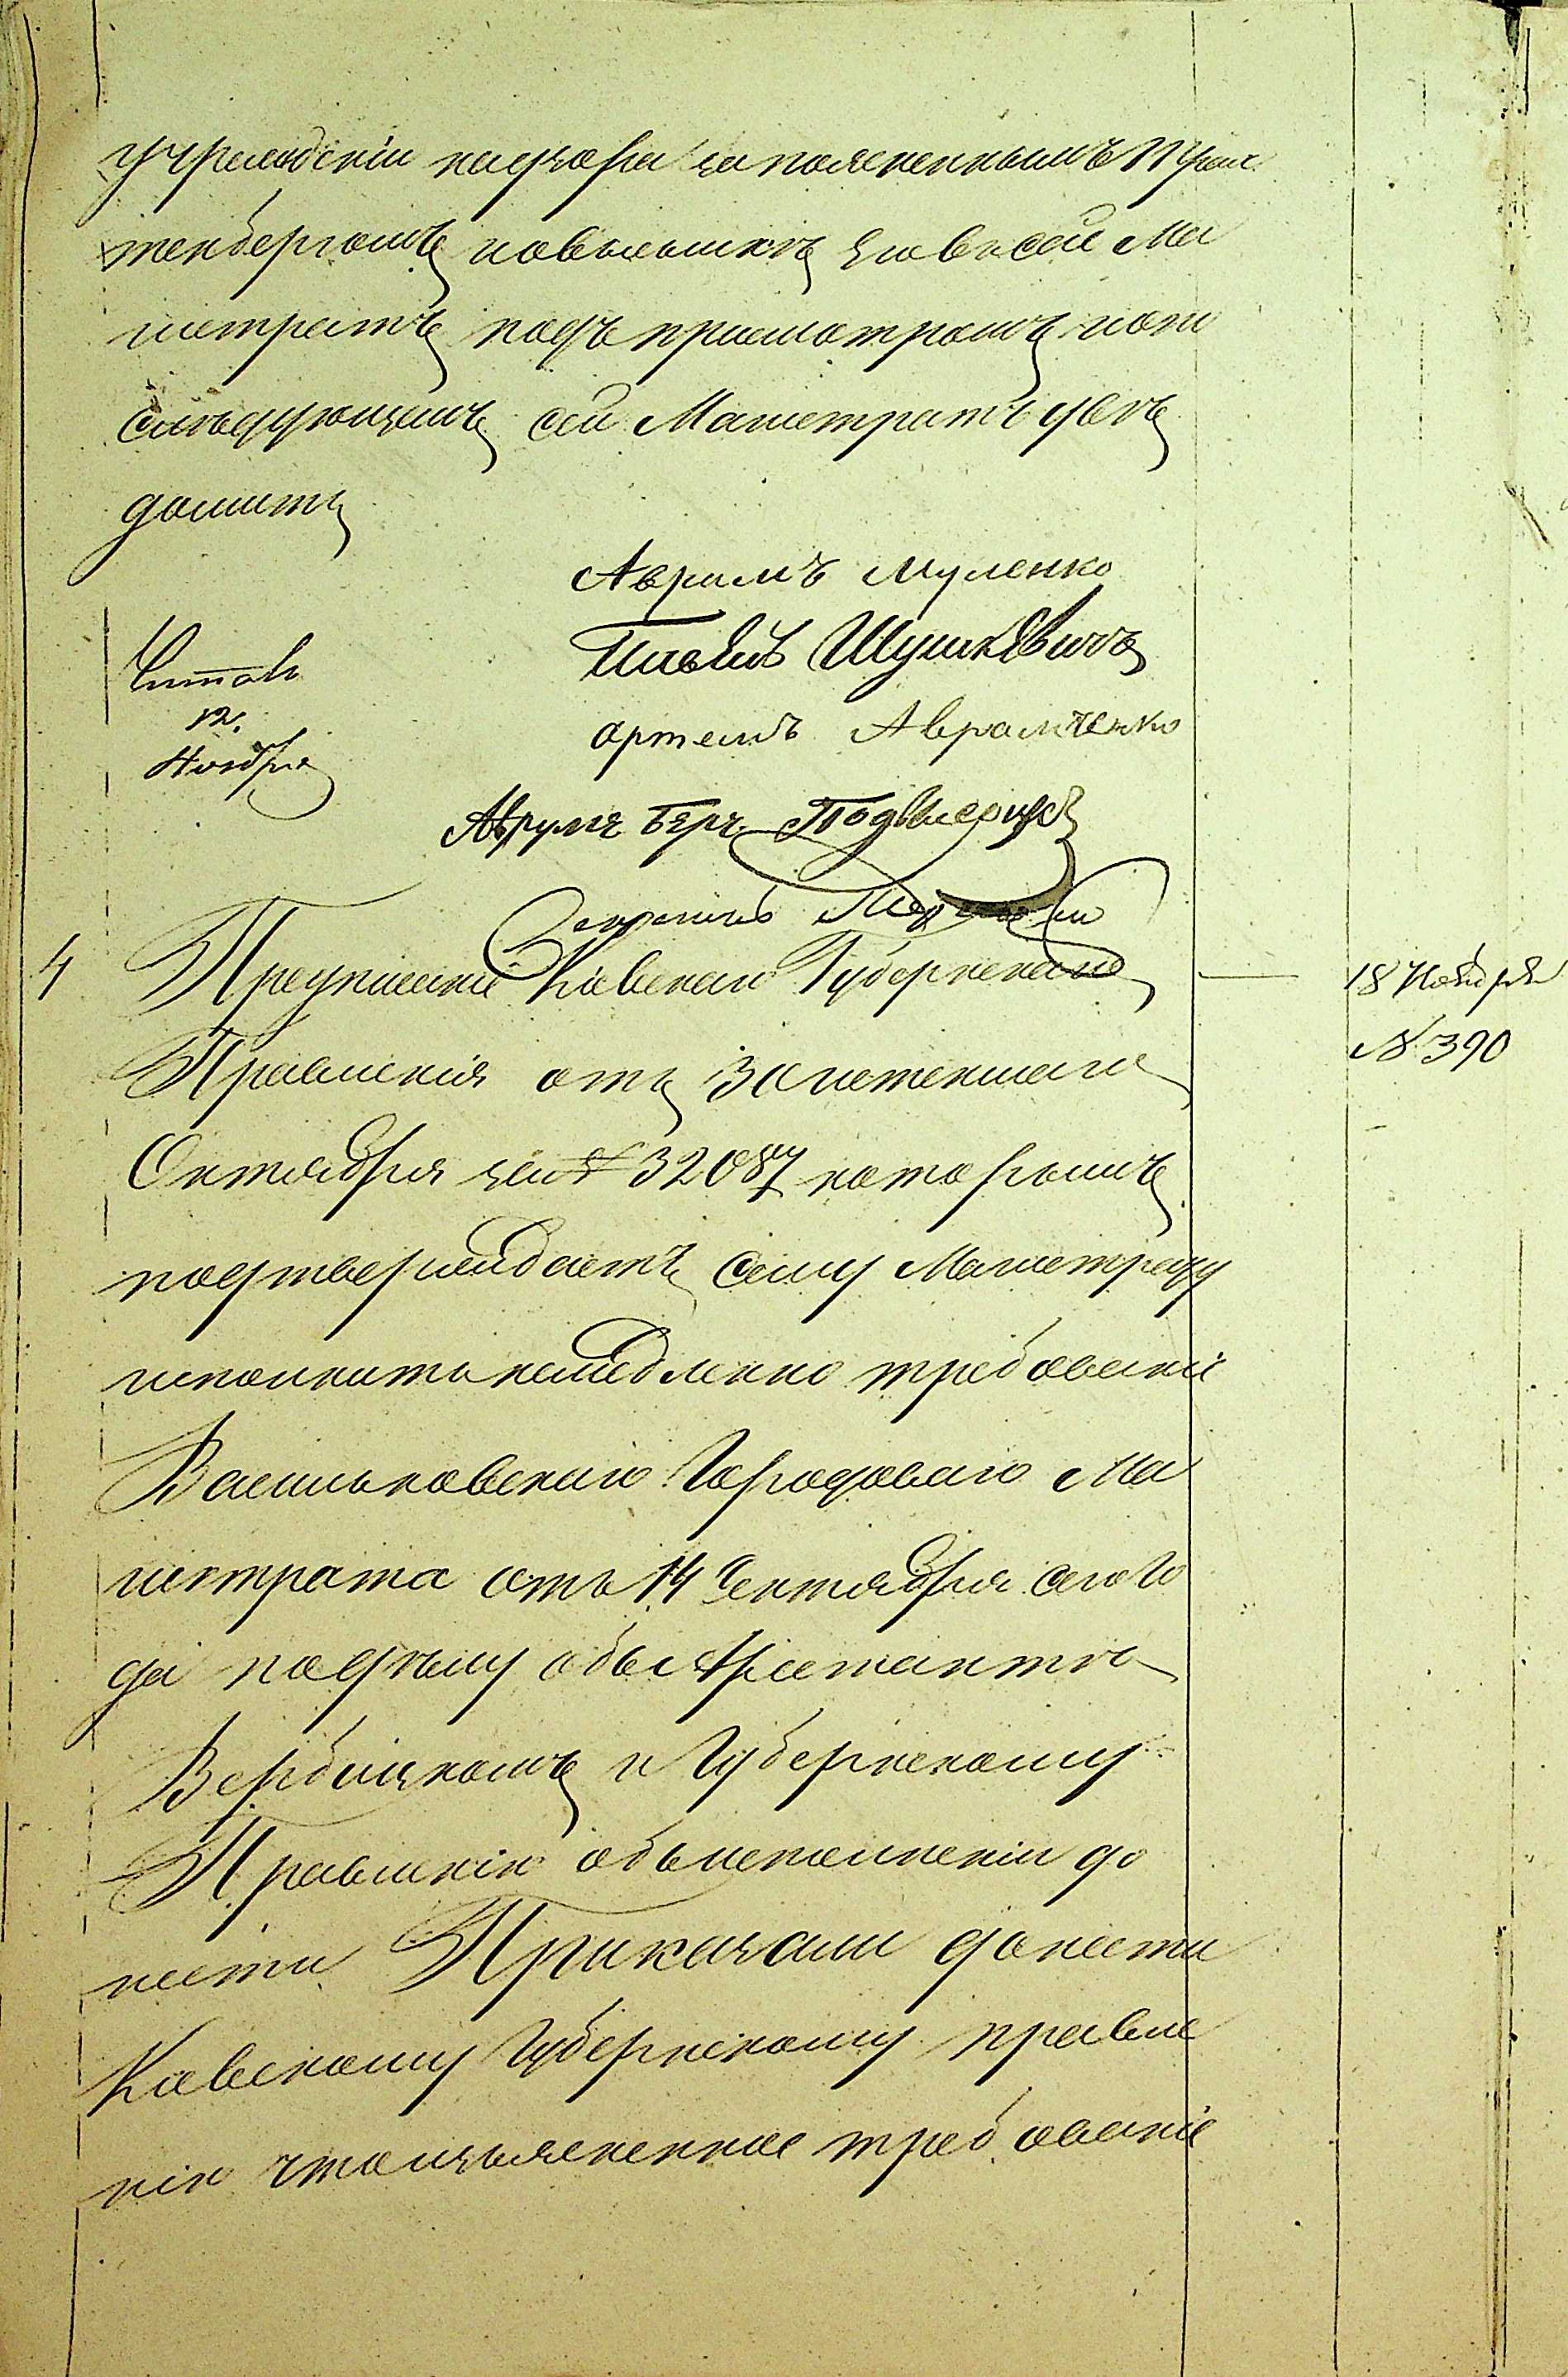 учрежденіи надзора за поясненнымъ
тенбергомъ и овысылкѣ его въ сей Ма
гистратъ подъ присмотромъ и о по
слѣдующемъ сей Магистратъ увѣ
домить
Аврамъ Муленко
Павелъ Шушкевичъ
Артемъ Авраменко
Аврумъ Беръ
Читалъ
12.
Ноября
Секретарь
4
Предписаніе Кіевскаго Губернскаго
Правленія отъ 30 истекшаго
Октября за № 32087 которымъ
подтверждаетъ сему Магистрату
исполнить немедленно требованіе
Васильковскаго Городоваго Ма
гистрата отъ 14 Сентября сего го
да по дѣлу объ Арестантѣ
Вербицкомъ и Губернскому
Правленію объ исполненіи до
нести Приказали донести
Кіевскому Губернскому правле
нію что изъясненное требованіе
18 Ноября
№ 390